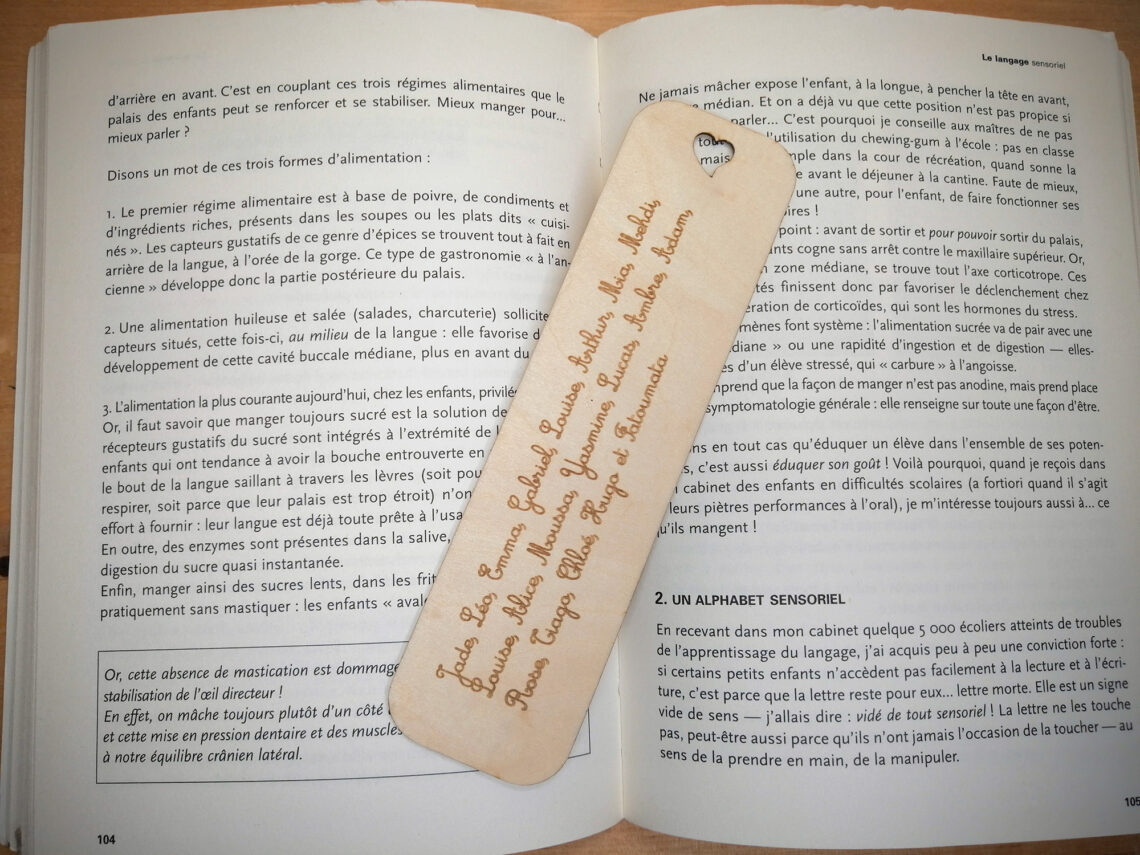 d'arrière en avant. C'est en couplant ces trois régimes alimentaires que le
palais des enfants peut se renforcer et se stabiliser. Mieux manger pour...
mieux parler ?
Disons un mot de ces trois formes d'alimentation :
1. Le premier régime alimentaire est à base de poivre, de condiments et
d'ingrédients riches, présents dans les soupes ou les plats dits « cuisi-
nés ». Les capteurs gustatifs de ce genre d'épices se trouvent tout à fait en
arrière de la langue, à l'orée de la gorge. Ce type de gastronomie « à l'an-
cienne » développe donc la partie postérieure du palais.
2. Une alimentation huileuse et salée (salades, charcuterie) sollicite
capteurs situés, cette fois-ci, au milieu de la langue : elle favorise
développement de cette cavité buccale médiane, plus en avant du
3. L'alimentation la plus courante aujourd'hui, chez les enfants,
Or, il faut savoir que manger toujours sucré est la solution de
récepteurs gustatifs du sucré sont intégrés à l'extrémité de
enfants qui ont tendance à avoir la bouche entrouverte en
le bout de la langue saillant à travers les lèvres (soit
respirer, soit parce que leur palais est trop étroit)
effort à fournir : leur langue est déjà toute prête à
En outre, des enzymes sont présentes dans la salive,
digestion du sucre quasi instantanée.
Enfin, manger ainsi des sucres lents, dans les
pratiquement sans mastiquer : les enfants «
Or, cette absence de mastication est dommage
stabilisation de l'œil directeur !
En effet, on mâche toujours plutôt d'un côté
et cette mise en pression dentaire et des muscles
à notre équilibre crânien latéral.
104
Jade, Léo, Emma, Gabriel, Louise, Arthur, Mia, Mehdi,
Louise, Alice, Moussa, Yasmine, Lucas, Ambre, Adam,
Rose, Tiago, Chloé, Hugo et Fatoumata
Le langage sensoriel
Ne jamais mâcher expose l'enfant, à la longue, à pencher la tête en avant,
médian. Et on a déjà vu que cette position n'est pas propice si
parler... C'est pourquoi je conseille aux maîtres de ne pas
tout l'utilisation du chewing-gum à l'école : pas en classe
mais dans la cour de récréation, quand sonne la
avant le déjeuner à la cantine. Faute de mieux,
une autre, pour l'enfant, de faire fonctionner ses
point : avant de sortir et pour pouvoir sortir du palais,
cogne sans arrêt contre le maxillaire supérieur. Or,
zone médiane, se trouve tout l'axe corticotrope. Ces
finissent donc par favoriser le déclenchement chez
de corticoïdes, qui sont les hormones du stress.
font système : l'alimentation sucrée va de pair avec une
» ou une rapidité d'ingestion et de digestion — elles-
d'un élève stressé, qui « carbure » à l'angoisse.
que la façon de manger n'est pas anodine, mais prend place
symptomatologie générale : elle renseigne sur toute une façon d'être.
en tout cas qu'éduquer un élève dans l'ensemble de ses poten-
c'est aussi éduquer son goût ! Voilà pourquoi, quand je reçois dans
cabinet des enfants en difficultés scolaires (a fortiori quand il s'agit
leurs piètres performances à l'oral), je m'intéresse toujours aussi à... ce
qu'ils mangent !
2. UN ALPHABET SENSORIEL
En recevant dans mon cabinet quelque 5 000 écoliers atteints de troubles
de l'apprentissage du langage, j'ai acquis peu à peu une conviction forte :
si certains petits enfants n'accèdent pas facilement à la lecture et à l'écri-
ture, c'est parce que la lettre reste pour eux... lettre morte. Elle est un signe
vide de sens — j'allais dire : vidé de tout sensoriel ! La lettre ne les touche
pas, peut-être aussi parce qu'ils n'ont jamais l'occasion de la toucher — au
sens de la prendre en main, de la manipuler.
105